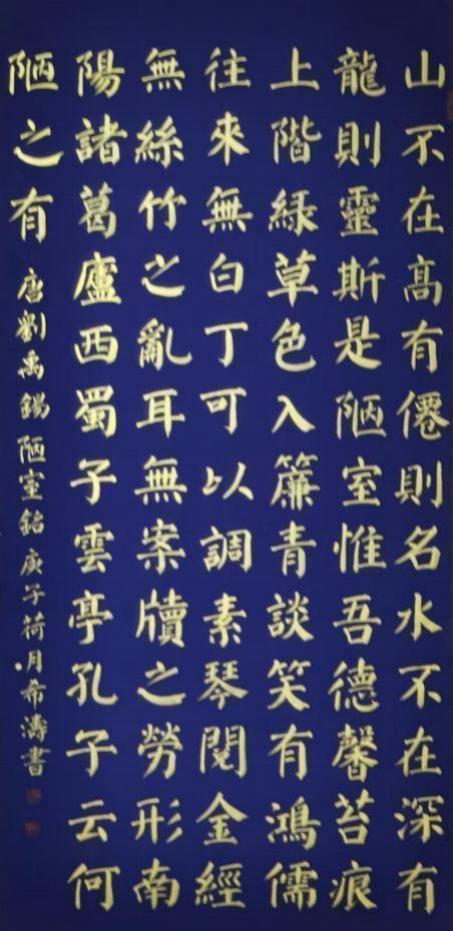 山不在高有僊則名水不在深有
龍則靈斯是陋室惟吾德馨苔痕
上階綠草色入簾青談笑有鴻儒
往來無白丁可以調素琴閱金經
無絲竹之亂耳無案牘之勞形南
陽諸葛廬西蜀子雲亭孔子云何
陋之有
唐劉禹錫陋室銘庚子荷月希濤書